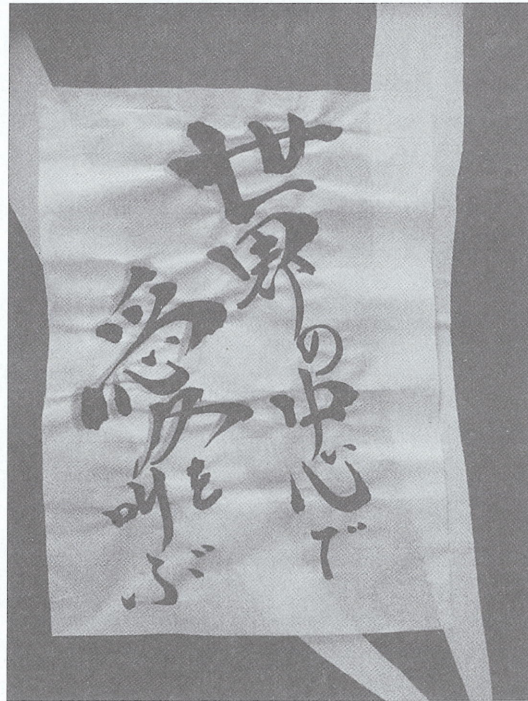 世界の中心で
愛を叫ぶ